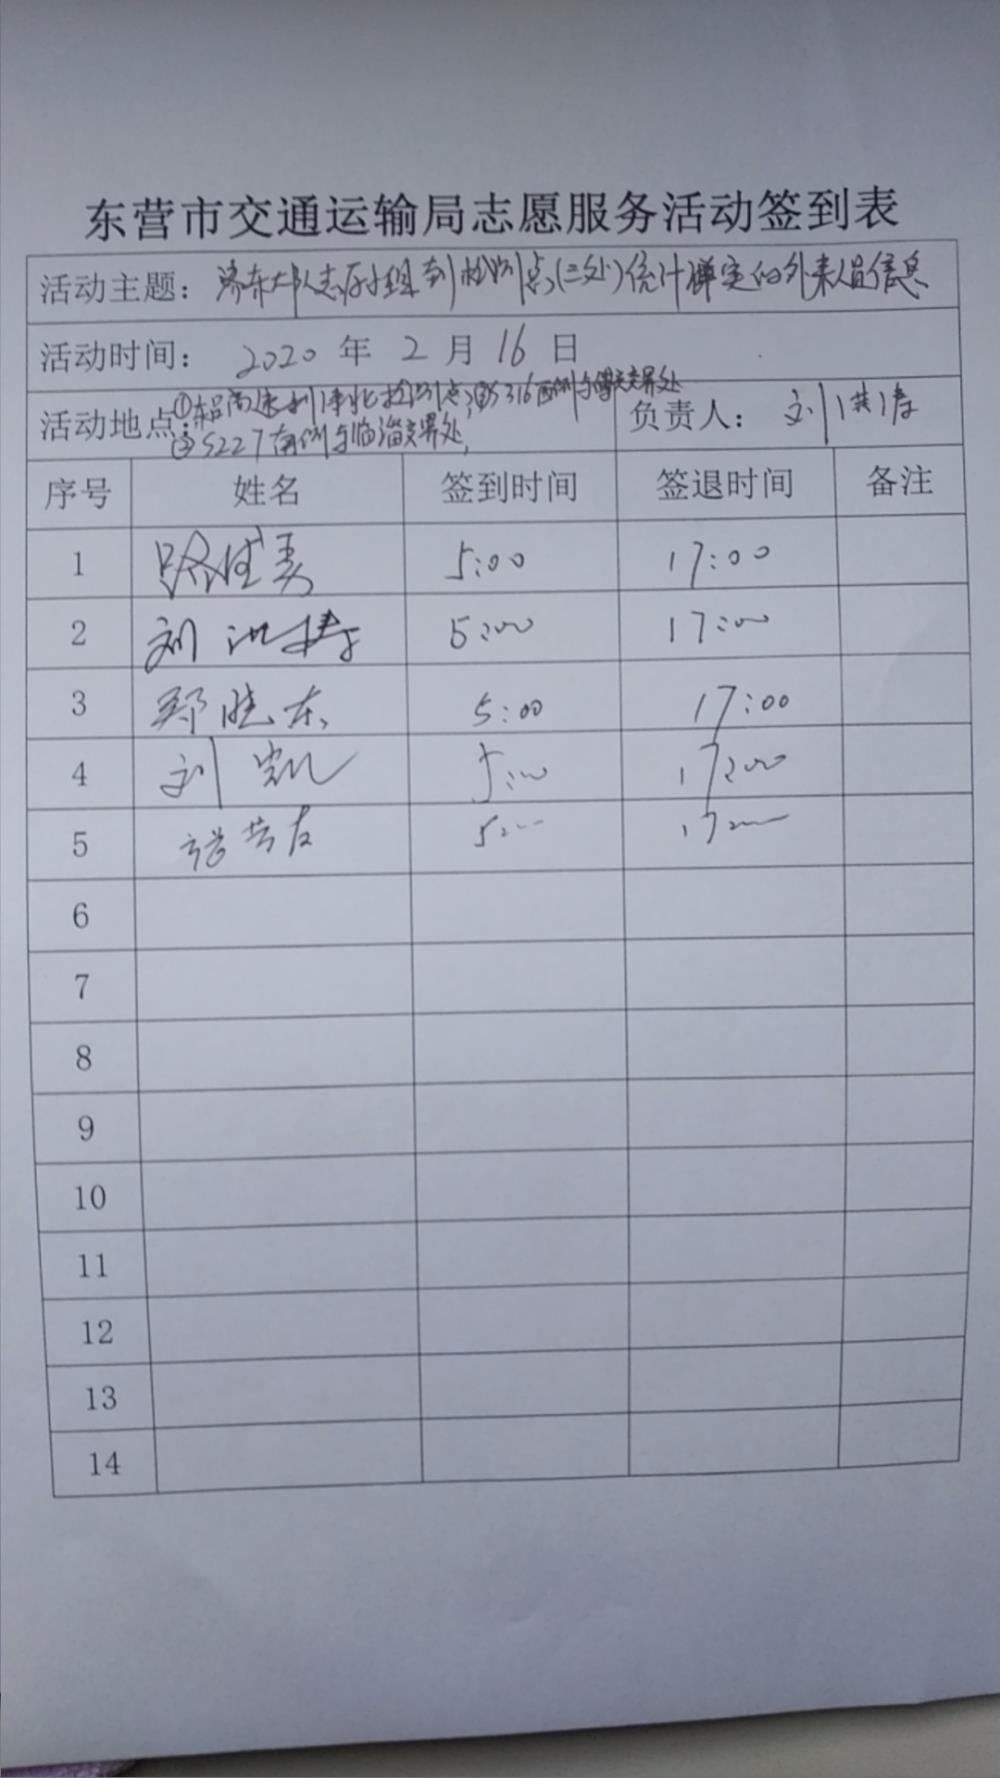 东营市交通运输局志愿服务活动签到表
活动主题：济东大队志愿小组到检测点(三处)统计确定的外来人员信息
活动时间：2020年2月16日
①东吕高速利津北检测点;②S316西侧与博兴交界处
活动地点： 负责人：刘洪涛
③S227南侧与临淄交界处
序号 姓名 签到时间 签退时间 备注
1 5:00 17:00
2 刘洪涛 5:00 17:00
3 郑晓东 5:00 17:00
4 刘凯 5:00 17:00
5 张芳友 5:00 17:00
6
7
8
9
10
11
12
13
14